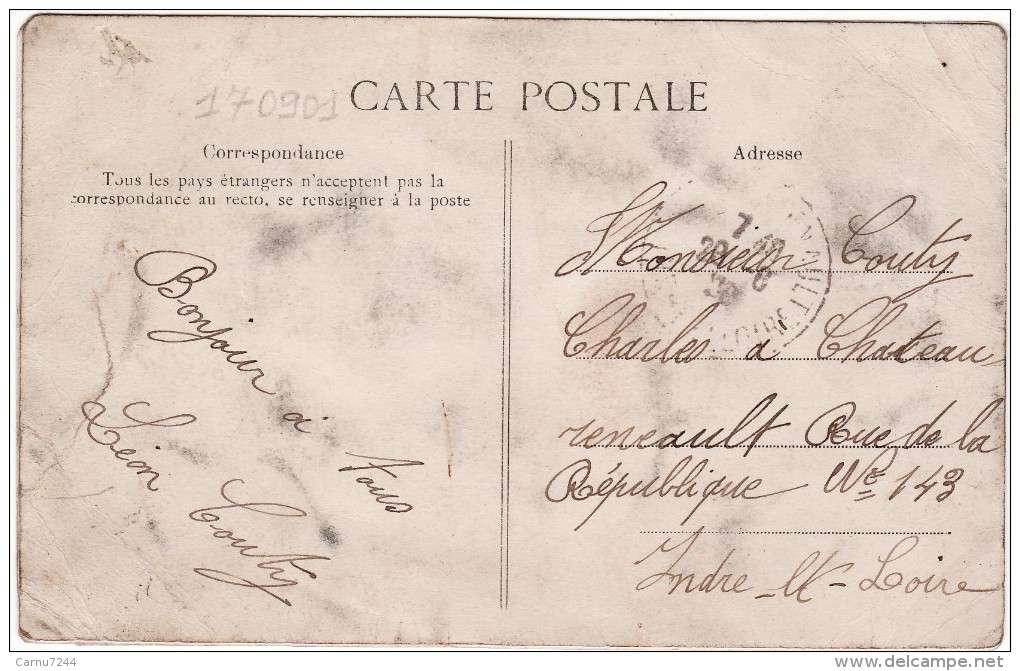 170901
CARTE POSTALE
Correspondance
Tous les pays étrangers n'acceptent pas la
correspondance au recto, se renseigner à la poste
Bonjour à tous
Léon Couty
Adresse
Monsieur Couty
Charles a Chateau-
reneault Rue de la
République No 143
Indre-et-Loire
7
Carnu7244
www.delcampe.net